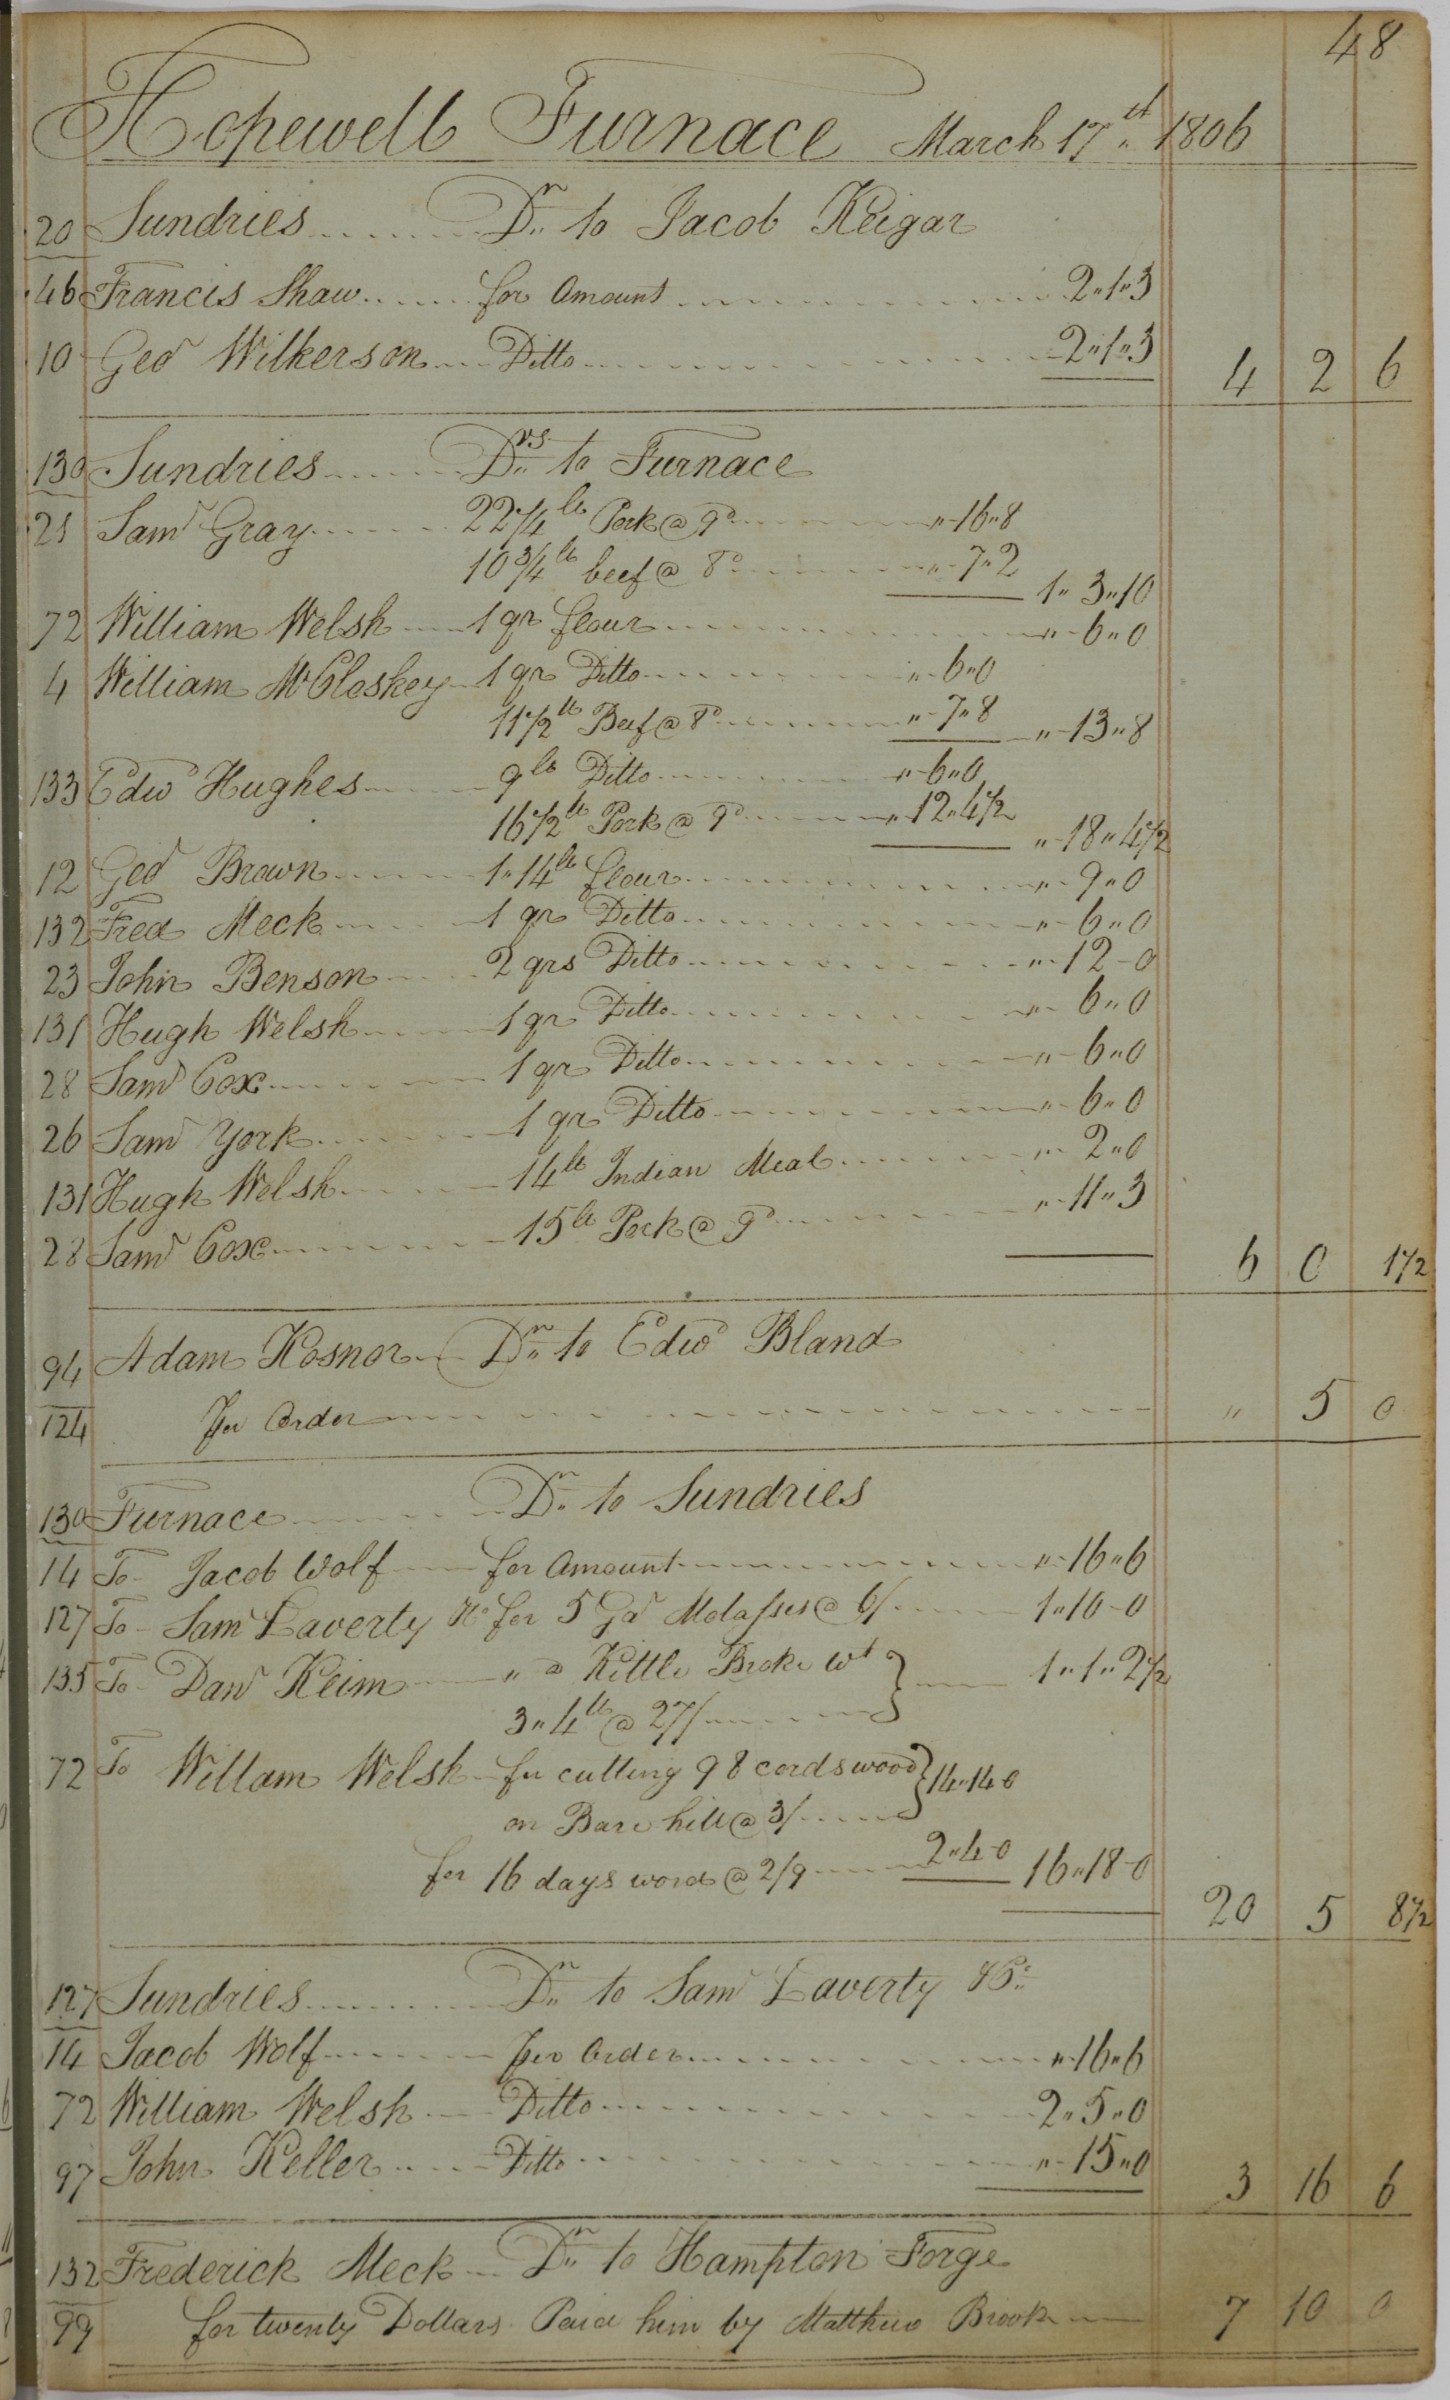 48
Hopewell Furnace March 17th 1806
20 Sundries Dr to Jacob Keigar
46 Francis Shaw for Amount 2"1"3
10 Geo Wilkerson Ditto 2"1"3 4 2 6
130 Sundries Drs to Furnace
21 Saml Gray 22 1/4 lb Pork @ 9d "16"8
10 3/4 lb beef @ 8d "7"2 1"3"10
72 William Welsh 1 qr flour "6"0
4 William McCloskey 1 qr Ditto "6"0
11 1/2 lb Beef @ 8d "7"8 "13"8
133 Edwd Hughes 9 lb Ditto "6"0
16 1/2 lb Pork @ 9d "12"4 1/2 "18"4 1/2
12 Geo Brown 1"14 lb flour "9"0
132 Fred Meck 1 qr Ditto "6"0
23 John Benson 2 qrs Ditto "12-0
131 Hugh Welsh 1 qr Ditto "6"0
28 Saml Cox 1 qr Ditto "6"0
26 Saml York 1 qr Ditto "6"0
131 Hugh Welsh 14 lb Indian Meal "2"0
28 Saml Cox 15 lb Pork @ 9d "11"3
6 0 1 1/2
94 Adam Kosnor Dr to Edwd Bland
124 Per Order " 5 0
130 Furnace Dr to Sundries
14 To Jacob Wolf for Amount "16"6
127 To Saml Laverty & Co for 5 Gal Molasses @ 6/ 1"10-0
135 To Danl Keim " a Kettle Broke wt
3"4 lb @ 27/ 1"1"2 1/2
72 To Willam Welsh for cutting 98 cords wood
on Bare hill @ 3/ 14"14-0
for 16 days word @ 2/9 2"4-0 16"18-0
20 5 8 1/2
127 Sundries Dr to Saml Laverty & Co
14 Jacob Wolf Per Order "16"6
72 William Welsh Ditto 2"5"0
97 John Keller Ditto "15"0 3 16 6
132 Frederick Meck Dr to Hampton Forge
99 for twenty Dollars Paid him by Matthew Brook 7 10 0